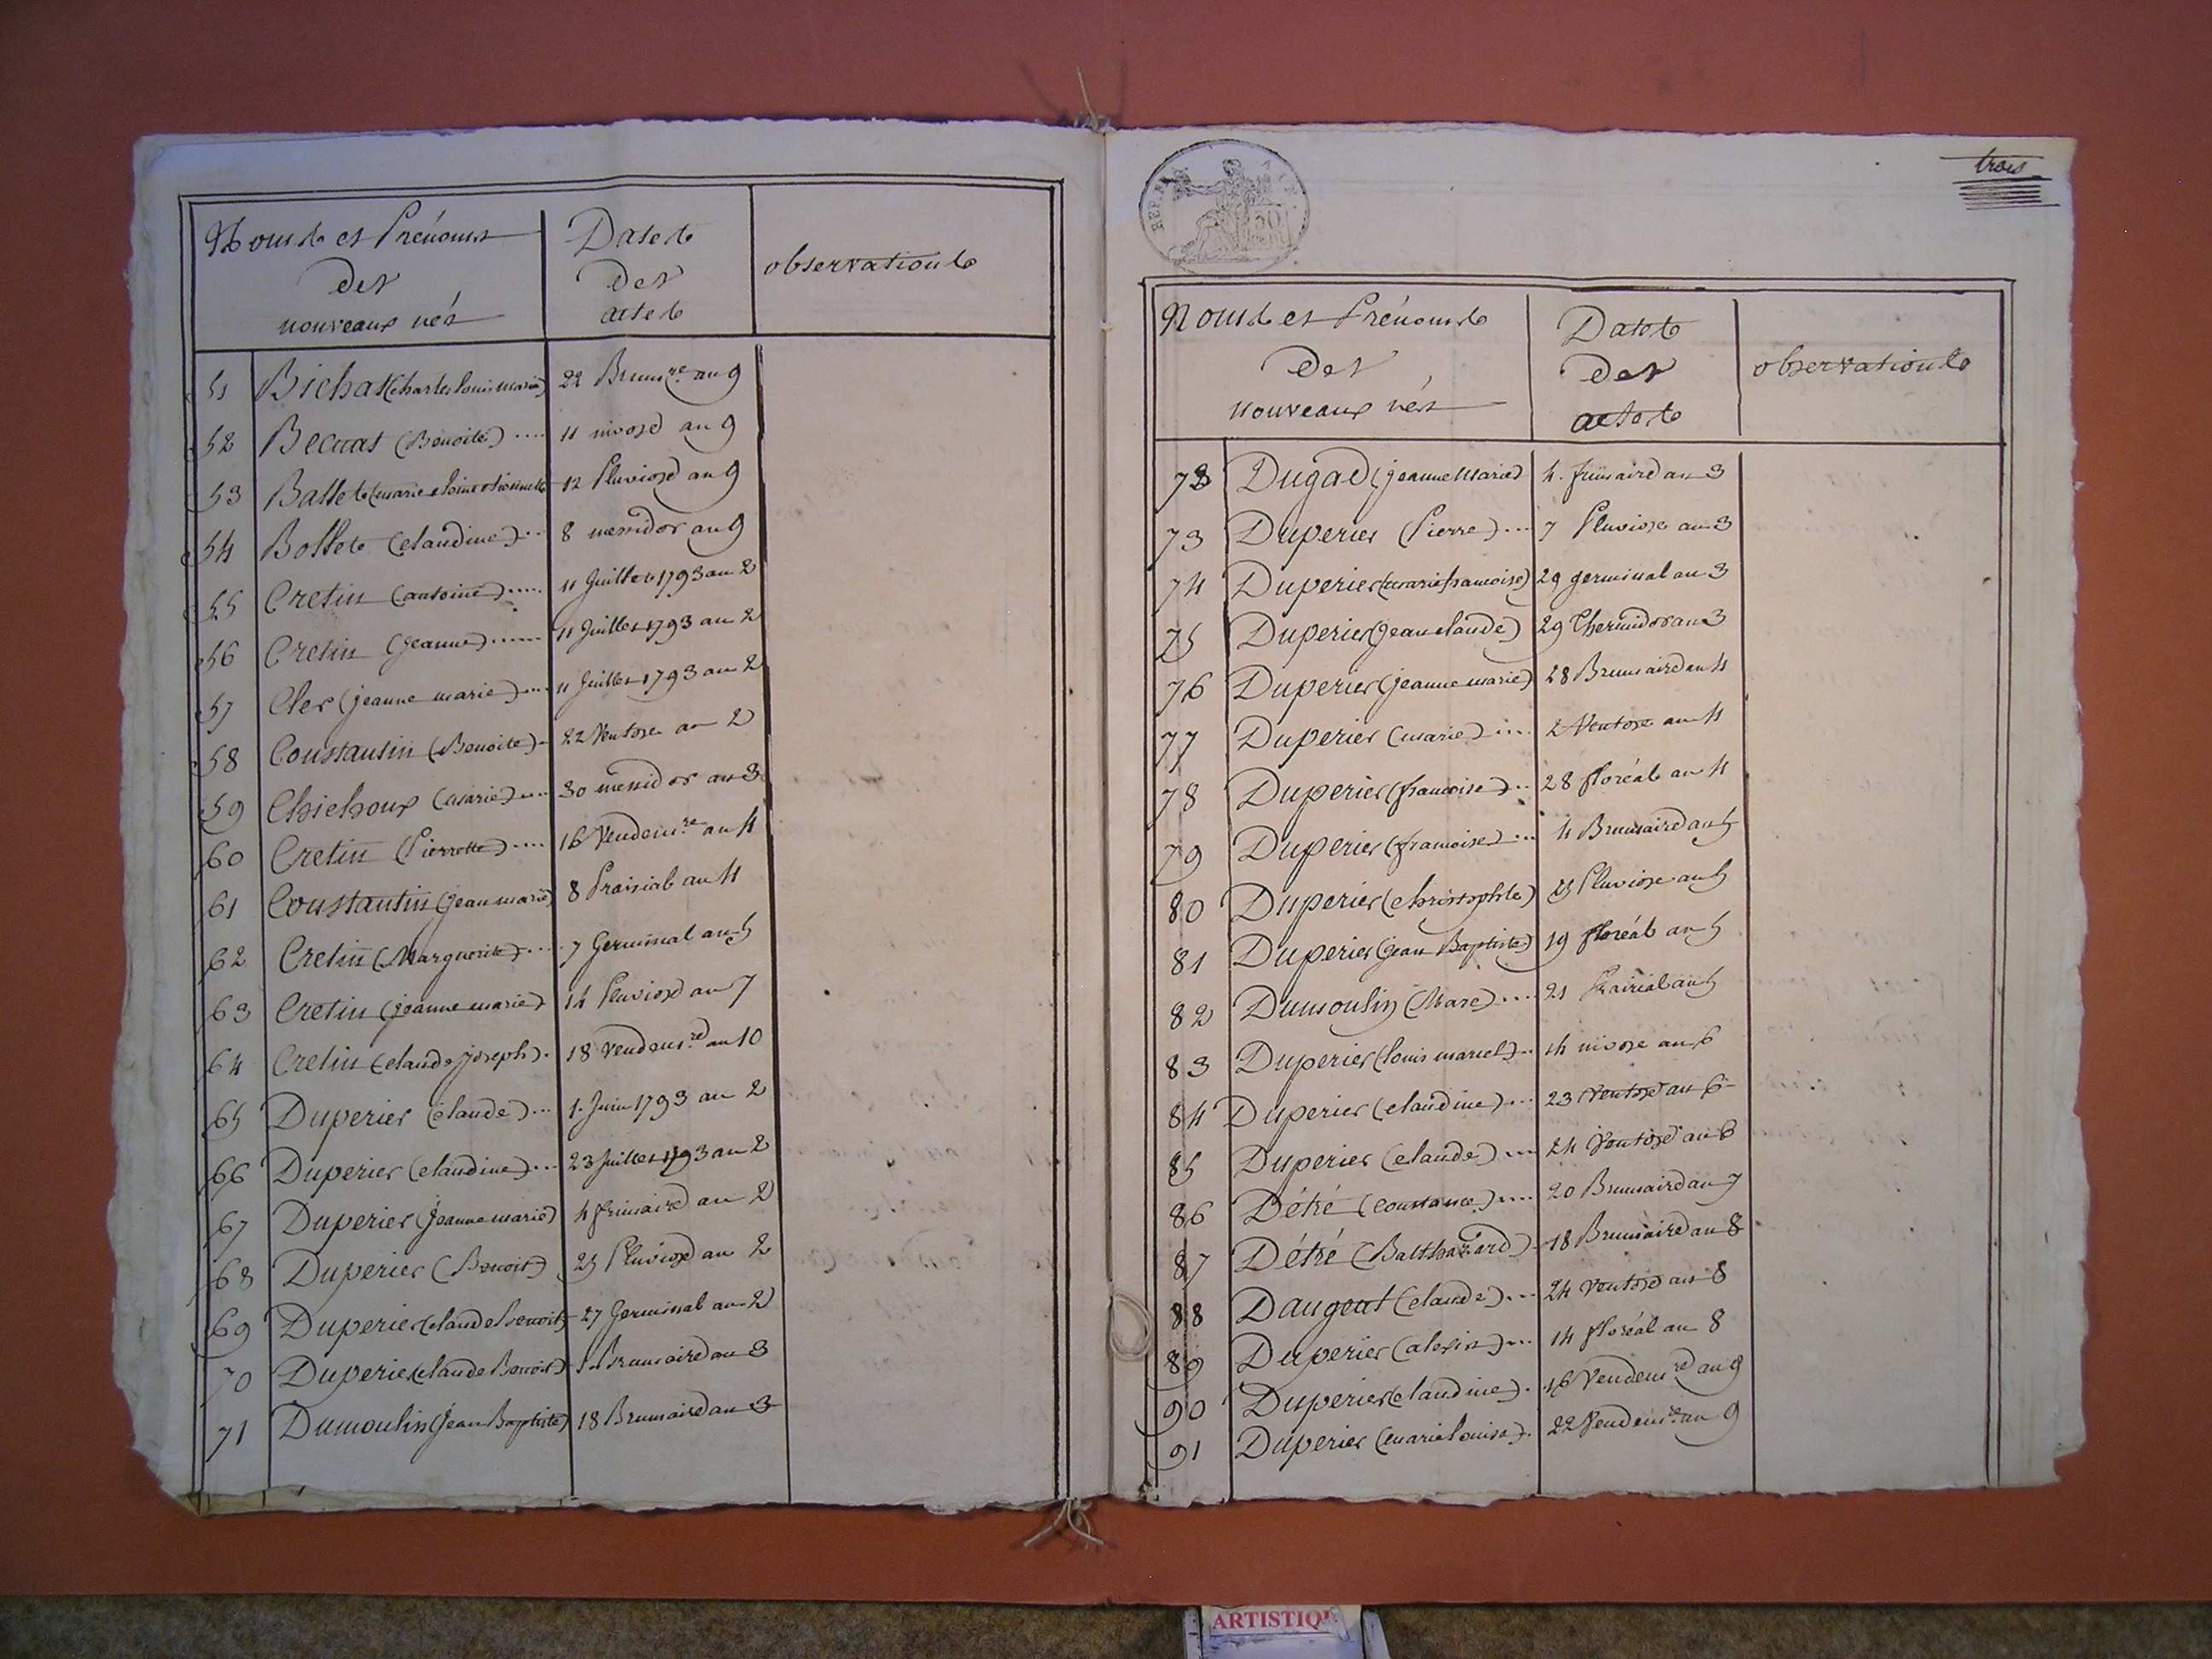 Noms et Prénoms
des
nouveaux nés
Dates
des
actes
observations
51 Bichat (charles louis marie) 22 Brum.re an 9
52 Becuat (Benoite) .... 11 nivose an 9
53 Basset (marie 12 Pluviose an 9
54 Bosset (claudine) ... 8 messidor an 9
55 Cretin (antoine) ..... 11 Juillet 1793 an 2
56 Cretin (jeanne) ...... 11 Juillet 1793 an 2
57 Cler (jeanne marie) .... 11 Juillet 1793 an 2
58 Constantin (Benoite) .. 22 Ventose an 2
59 Chichoux (marie) .... 30 messidor an 3
60 Cretin (Pierrette) .... 16 Vendem.re an 4
61 Constantin (jean marie) 8 Prairial an 4
62 Cretin (Marguerite) .... 7 Germinal an 5
63 Cretin (jeanne marie) 14 Pluviose an 7
64 Cretin (claude joseph) . 18 vendem.re an 10
65 Duperier (claude) ... 1. Juin 1793 an 2
66 Duperier (claudine) ... 23 Juillet 1793 an 2
67 Duperier (jeanne marie) 4 frimaire an 2
68 Duperier (Benoit) 25 Pluviose an 2
69 Duperier (claude benoit) 27 Germinal an 2
70 Duperier (claude Benoit) Brumaire an 3
71 Dumoulin (jean Baptiste) 18 Brumaire an 3
REP. FR
50
trois
Noms et Prénoms
des
nouveaux nés
Dates
des
actes
observations
72 Dugad (jeanne Marie) 4. frimaire an 3
73 Duperier (Pierre) ... 7 Pluviose an 3
74 Duperier (marie francoise) 29 germinal an 3
75 Duperier (jean claude) 29 Thermidor an 3
76 Duperier (jeanne marie) 28 Brumaire an 4
77 Duperier (marie) .... 2 Ventose an 4
78 Duperier (francoise) .. 28 floréal an 4
79 Duperier (francoise) ... 4 Brumaire an 5
80 Duperier (christophle) 25 Pluviose an 5
81 Duperier (jean Baptiste) 19 floréal an 5
82 Dumoulin (Marc) .... 21 Prairial an 5
83 Duperier (louis marcel) .. 14 nivose an 6
84 Duperier (claudine) ... 23 Ventose an 6
85 Duperier (claude) .... 24 Ventose an 6
86 Détré (constance) .... 20 Brumaire an 7
87 Détré (Balthazard) 18 Brumaire an 8
88 Dangeut (claude) ... 24 ventose an 8
89 Duperier (alexis) ... 14 floréal an 8
90 Duperier (claudine) . 16 Vendem.re an 9
91 Duperier (marie louise) . 22 Vendem.re an 9
ARTISTIQ